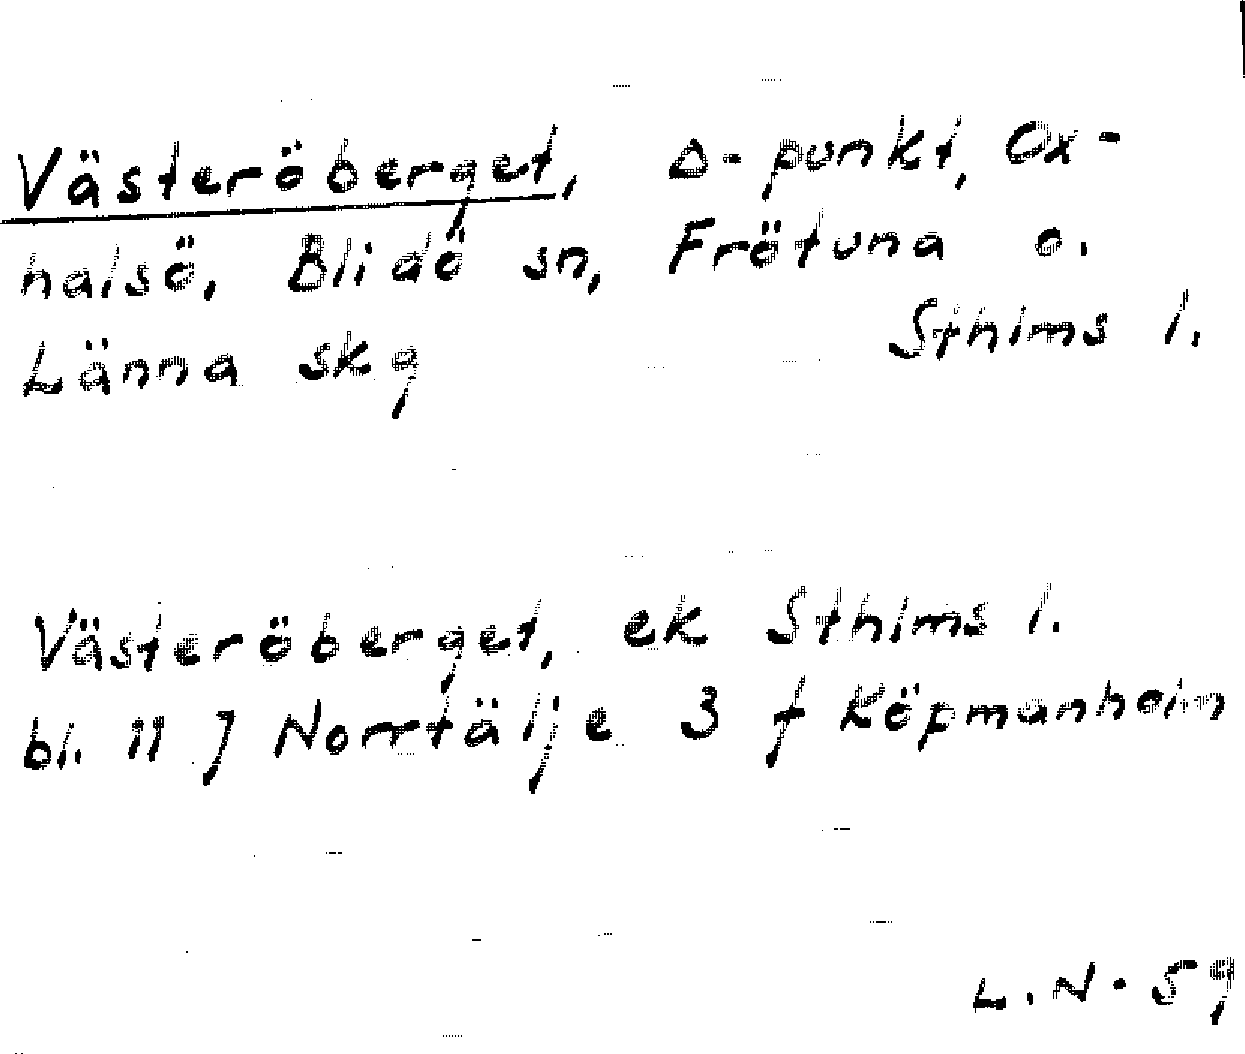 Västeröberget, Δ-punkt, Ox-
halsö, Blidö sn, Frötuna o.
Länna skg Sthlms l.
Västeröberget, ek Sthlms l.
bl. 11 J Norrtälje 3 f Köpmanholm
L.N. 59